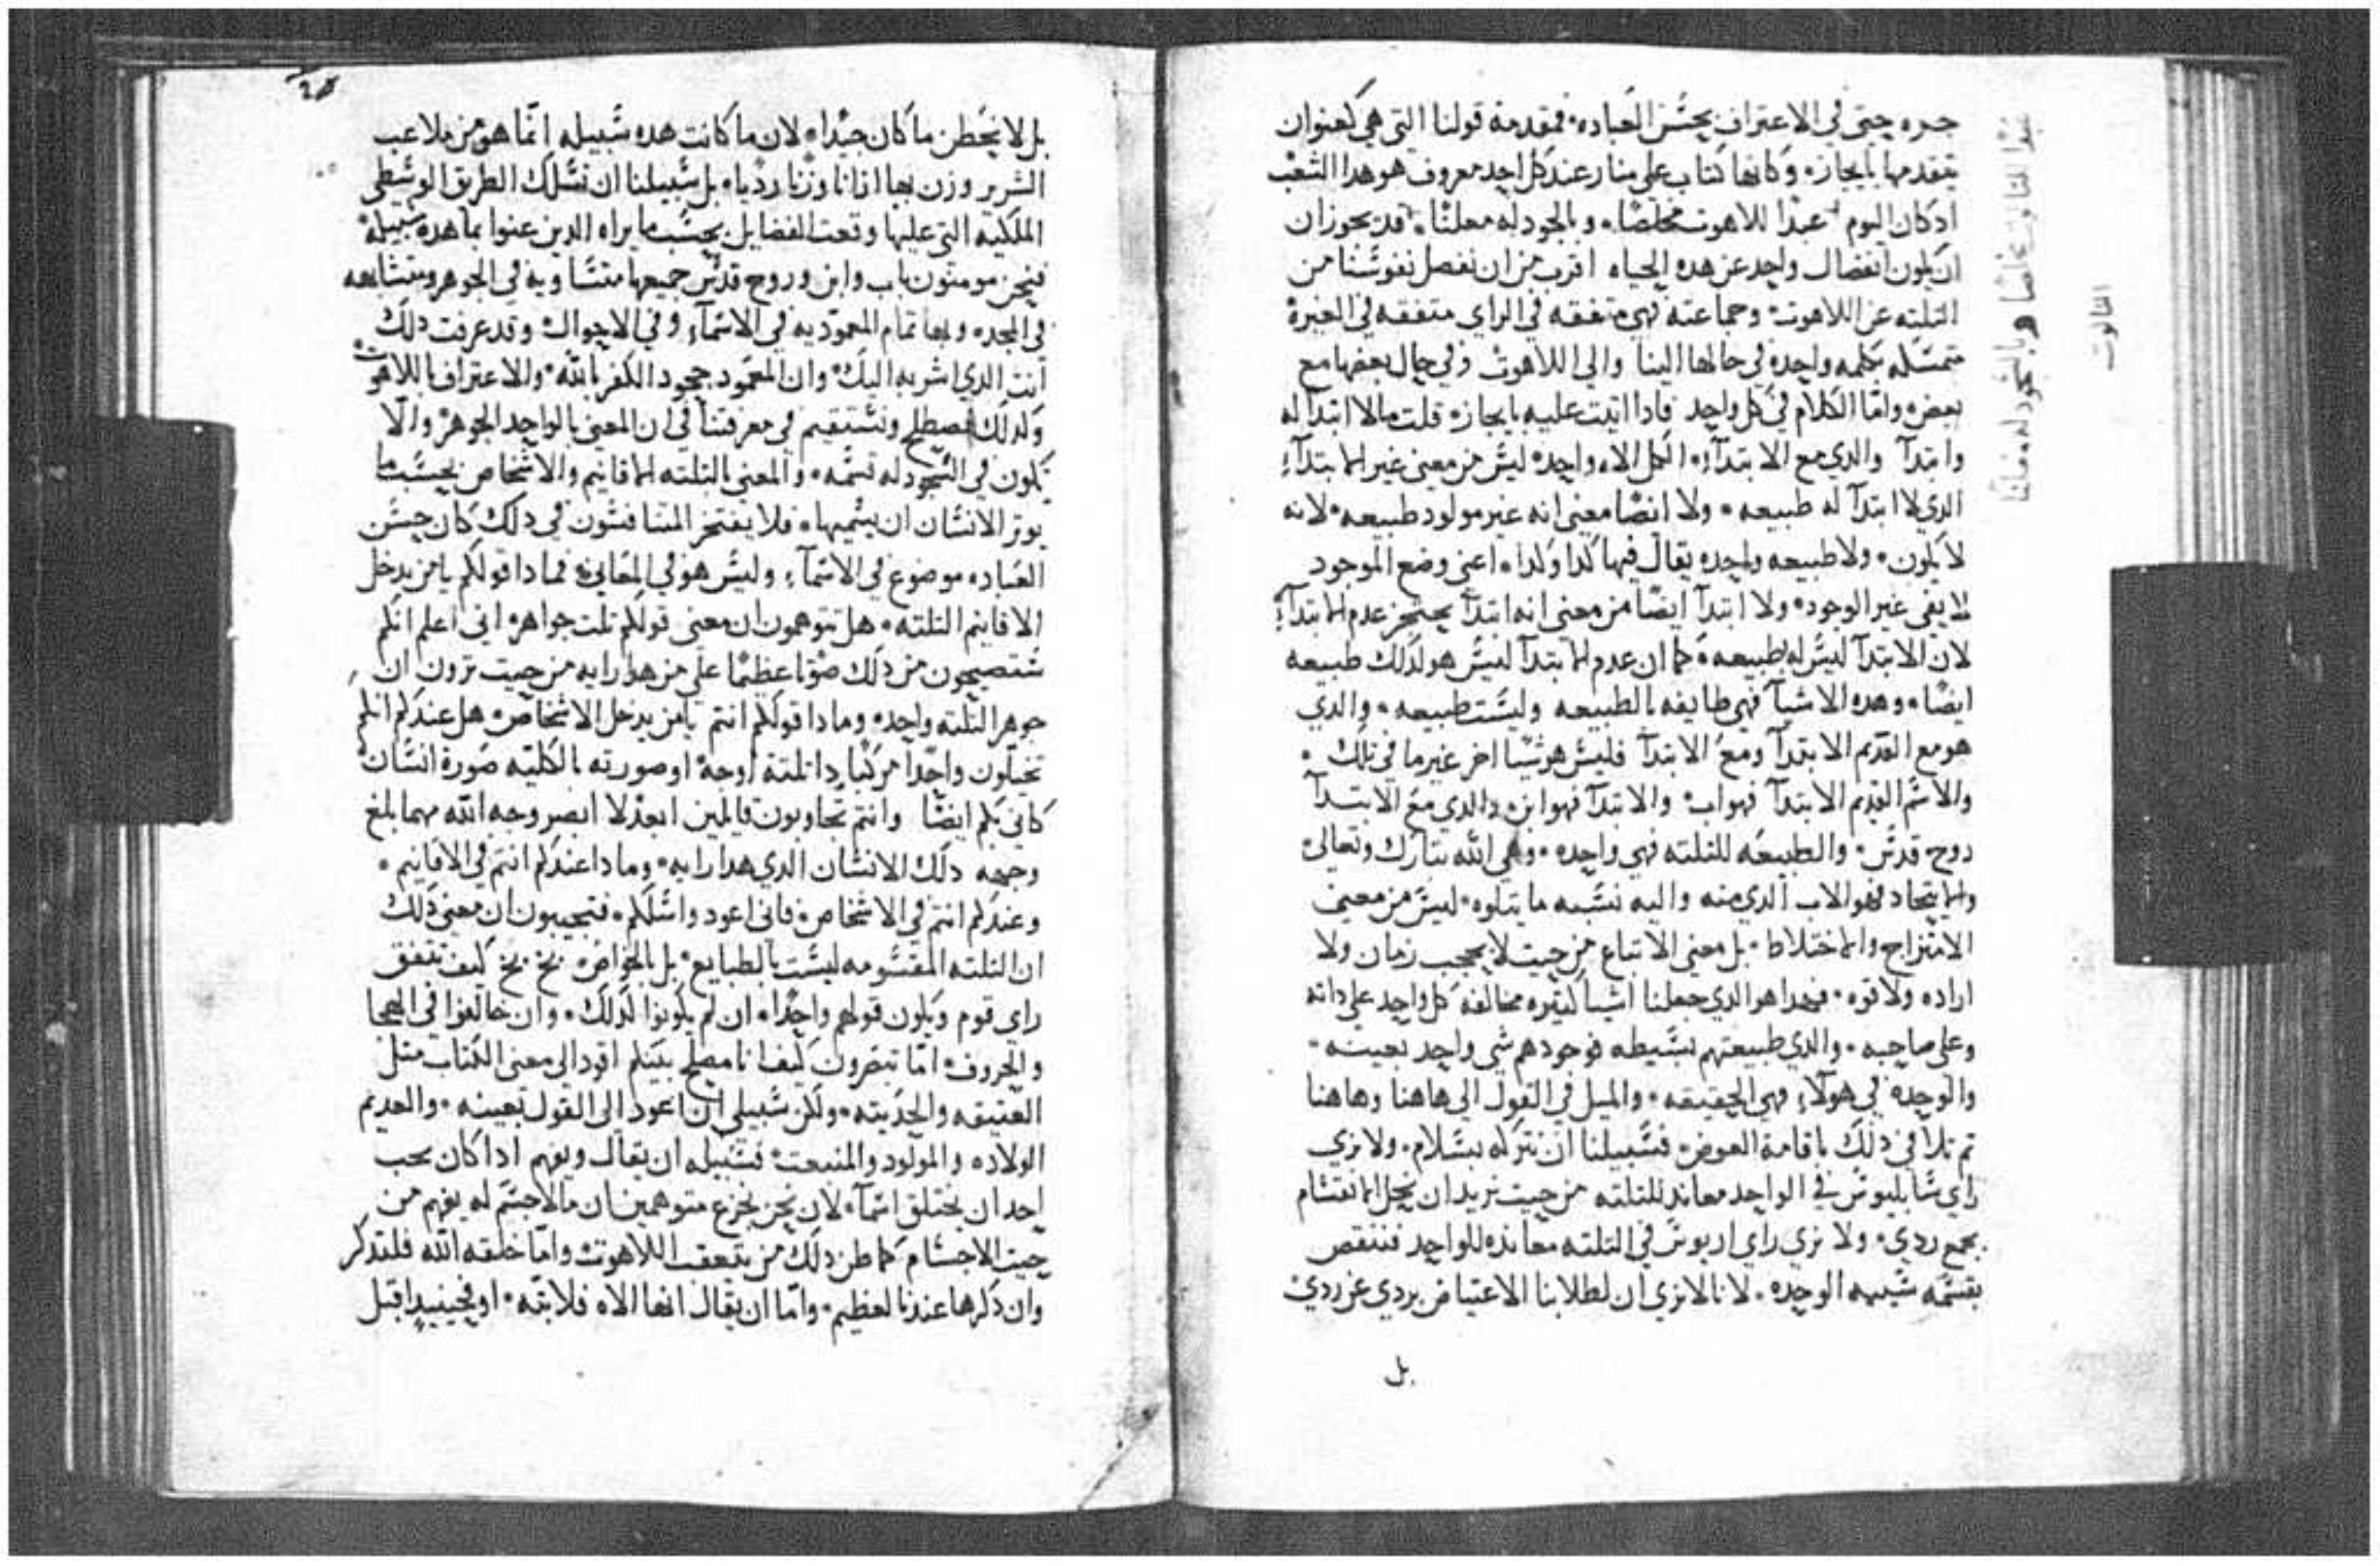 حره حيتى في الاعتراف بحسن العباده فمقدمة قولنا التي هي كعنوان
يتقدمها بايجازه وكانها كتاب على منار عند كل احد معروف هو هدا الشعب
ادكان اليوم عبدا للاهوت مخلصا وبالجود له معلنا قد يجوز ان
ان يكون انفصال واحد عن هده الحياه اقرب من ان نفصل نفوسنا من
التلته عن اللاهوت وجماعته فهي متفقه في الراي متفقه في الغيرة
متمسكه بكلمه واحده في حالها الينا والي اللاهوت وفي حال بعضها مع
بعض واما الكلام في كل واحد فادا اتيت عليه بايجازه قلت مالا ابتدآ له
وابتدآ والدي مع الابتدآء الكل الاه واحد ليس من معني غير الابتدآء
الدي لا ابتدآ له طبيعه ولا ايضا معني انه غير مولود طبيعه لانه
لا يكون ولا طبيعه واحده يقال فيها كدا وكدا اعني وضع الموجود
لا يفي غير الوجود ولا ابتدآ ايضا من معني انه ابتدآ يحتجز عدم الابتدآء
لان الابتدآ ليس له طبيعه كما ان عدم الابتدآ ليس هو لدلك طبيعه
ايضا وهده الاشيآ فهي طايفه بالطبيعه وليست طبيعه والدي
هو مع القديم الابتدآ ومع الابتدآ فليس هو شيا اخر غير ما في تلك
والاسم القديم الابتدآ فهو اب والابتدآ فهو ابن والدي مع الابتدآ
روح قدس والطبيعه للتلته فهي واحده وهي الله تبارك وتعالى
والايتحاد فهو الاب الدي منه واليه نسبه ما يتلوه ليس من معني
الامتزاج والاختلاط بل معني الاتباع من حيت لا يحجب زمان ولا
اراده ولا قوه فهدا هو الدي جعلنا اشيا كتيره مخالفه كل واحد على داته
وعلى صاحبه والدي طبيعتهم بسيطه فوجودهم شي واحد بعينه
والوحده في هولآء فهي الحقيقه والميل في القول الي هاهنا وهاهنا
تم تلافي دلك باقامة العوض فسبيلنا ان نتركه بسلام ولا نري
راي سابليوس في الواحد معاند للتلته من حيت نريد ان نحل الانقسام
بجمع ردي ولا نري راي اريوس في التلته معانده للواحد فننقص
بقسمه شبيهه الوحده لانا لا نري ان لطلابنا الاعتياض بردي عن ردي
بل
وبالسجود له معلنا
التالوت
بل لا نخطى ما كان جيدا لان ما كانت هده سبيله انما هو من ملاعب
الشرير وزن بها ازانا وزنا رديا بل سبيلنا ان نسلك الطريق الوسطي
الملكيه التي عليها وقعت الفضايل بحسب ما يراه الدين عنوا بما هده سبيله
فنحن مومنون باب وابن وروح قدس جميعها متساويه في الجوهر ومتشابهه
في المجد وبها تمام المعموديه في الاسمآء وفي الاحوال وقد عرفت دلك
انت الدي اشر به اليك وان المعمود جحود الكفر بالله والاعتراف باللاهوت
وكدلك نصطلح ونستقيم في معرفتنا في ان المعني بالواحد الجوهر والا
تكون في السجود له قسمه والمعني بالتلته الاقانيم والاشخاص بحسب ما
يوتر الانسان ان يسميها فلا يفتخر المتنافسون في دلك كان حسن
العباده موضوع في الاسمآء وليس هو في المعاني فما دا قولكم يا من يدخل
الاقانيم التلته هل تتوهمون ان معني قولكم تلت جواهر اني اعلم انكم
ستصيحون من دلك صوتا عظيما على من هدا رايه من حيت ترون ان
جوهر التلته واحد وما دا قولكم انتم يا من يدخل الاشخاص هل عندكم انكم
تخيلون واحدا مركبا دا تلتة اوجه او صورته بالكليه صورة انسان
كاني بكم ايضا وانتم تجاوبون قايلين ابعد لا ابصر وجه الله مهما بلغ
وجهه دلك الانسان الدي هدا رايه وما دا عندكم انتم في الاقانيم
وعندكم انتم في الاشخاص فاني اعود واسلكم فتجيبون ان معني دلك
ان التلته المقسومه ليست بالطبايع بل بالخواص بخ بخ كيف تتفق
راي قوم ويكون قولهم واحدا ان لم يكونوا لدلك وان خالفوا في الهجا
والحروف اما تبصرون كيف انا مصلح بينكم اقود الى معني الكتاب متل
العتيقه والحديته ولكن سبيلي ان اعود الى القول بعينه والعديم
الولاده والمولود والمنبعت فسبيله ان يقال ويفهم ادا كان يحب
احد ان يختلق اسمآء لان نحن نجزع متوهمين ان مالا جسم له يفهم من
حيت الاجسام كما ظن دلك من يتعقب اللاهوت واما خلقه الله فلتدكر
وان دكرها عندنا لعظيم واما ان يقال انها الاه فلا بته او فحينيد اقبل